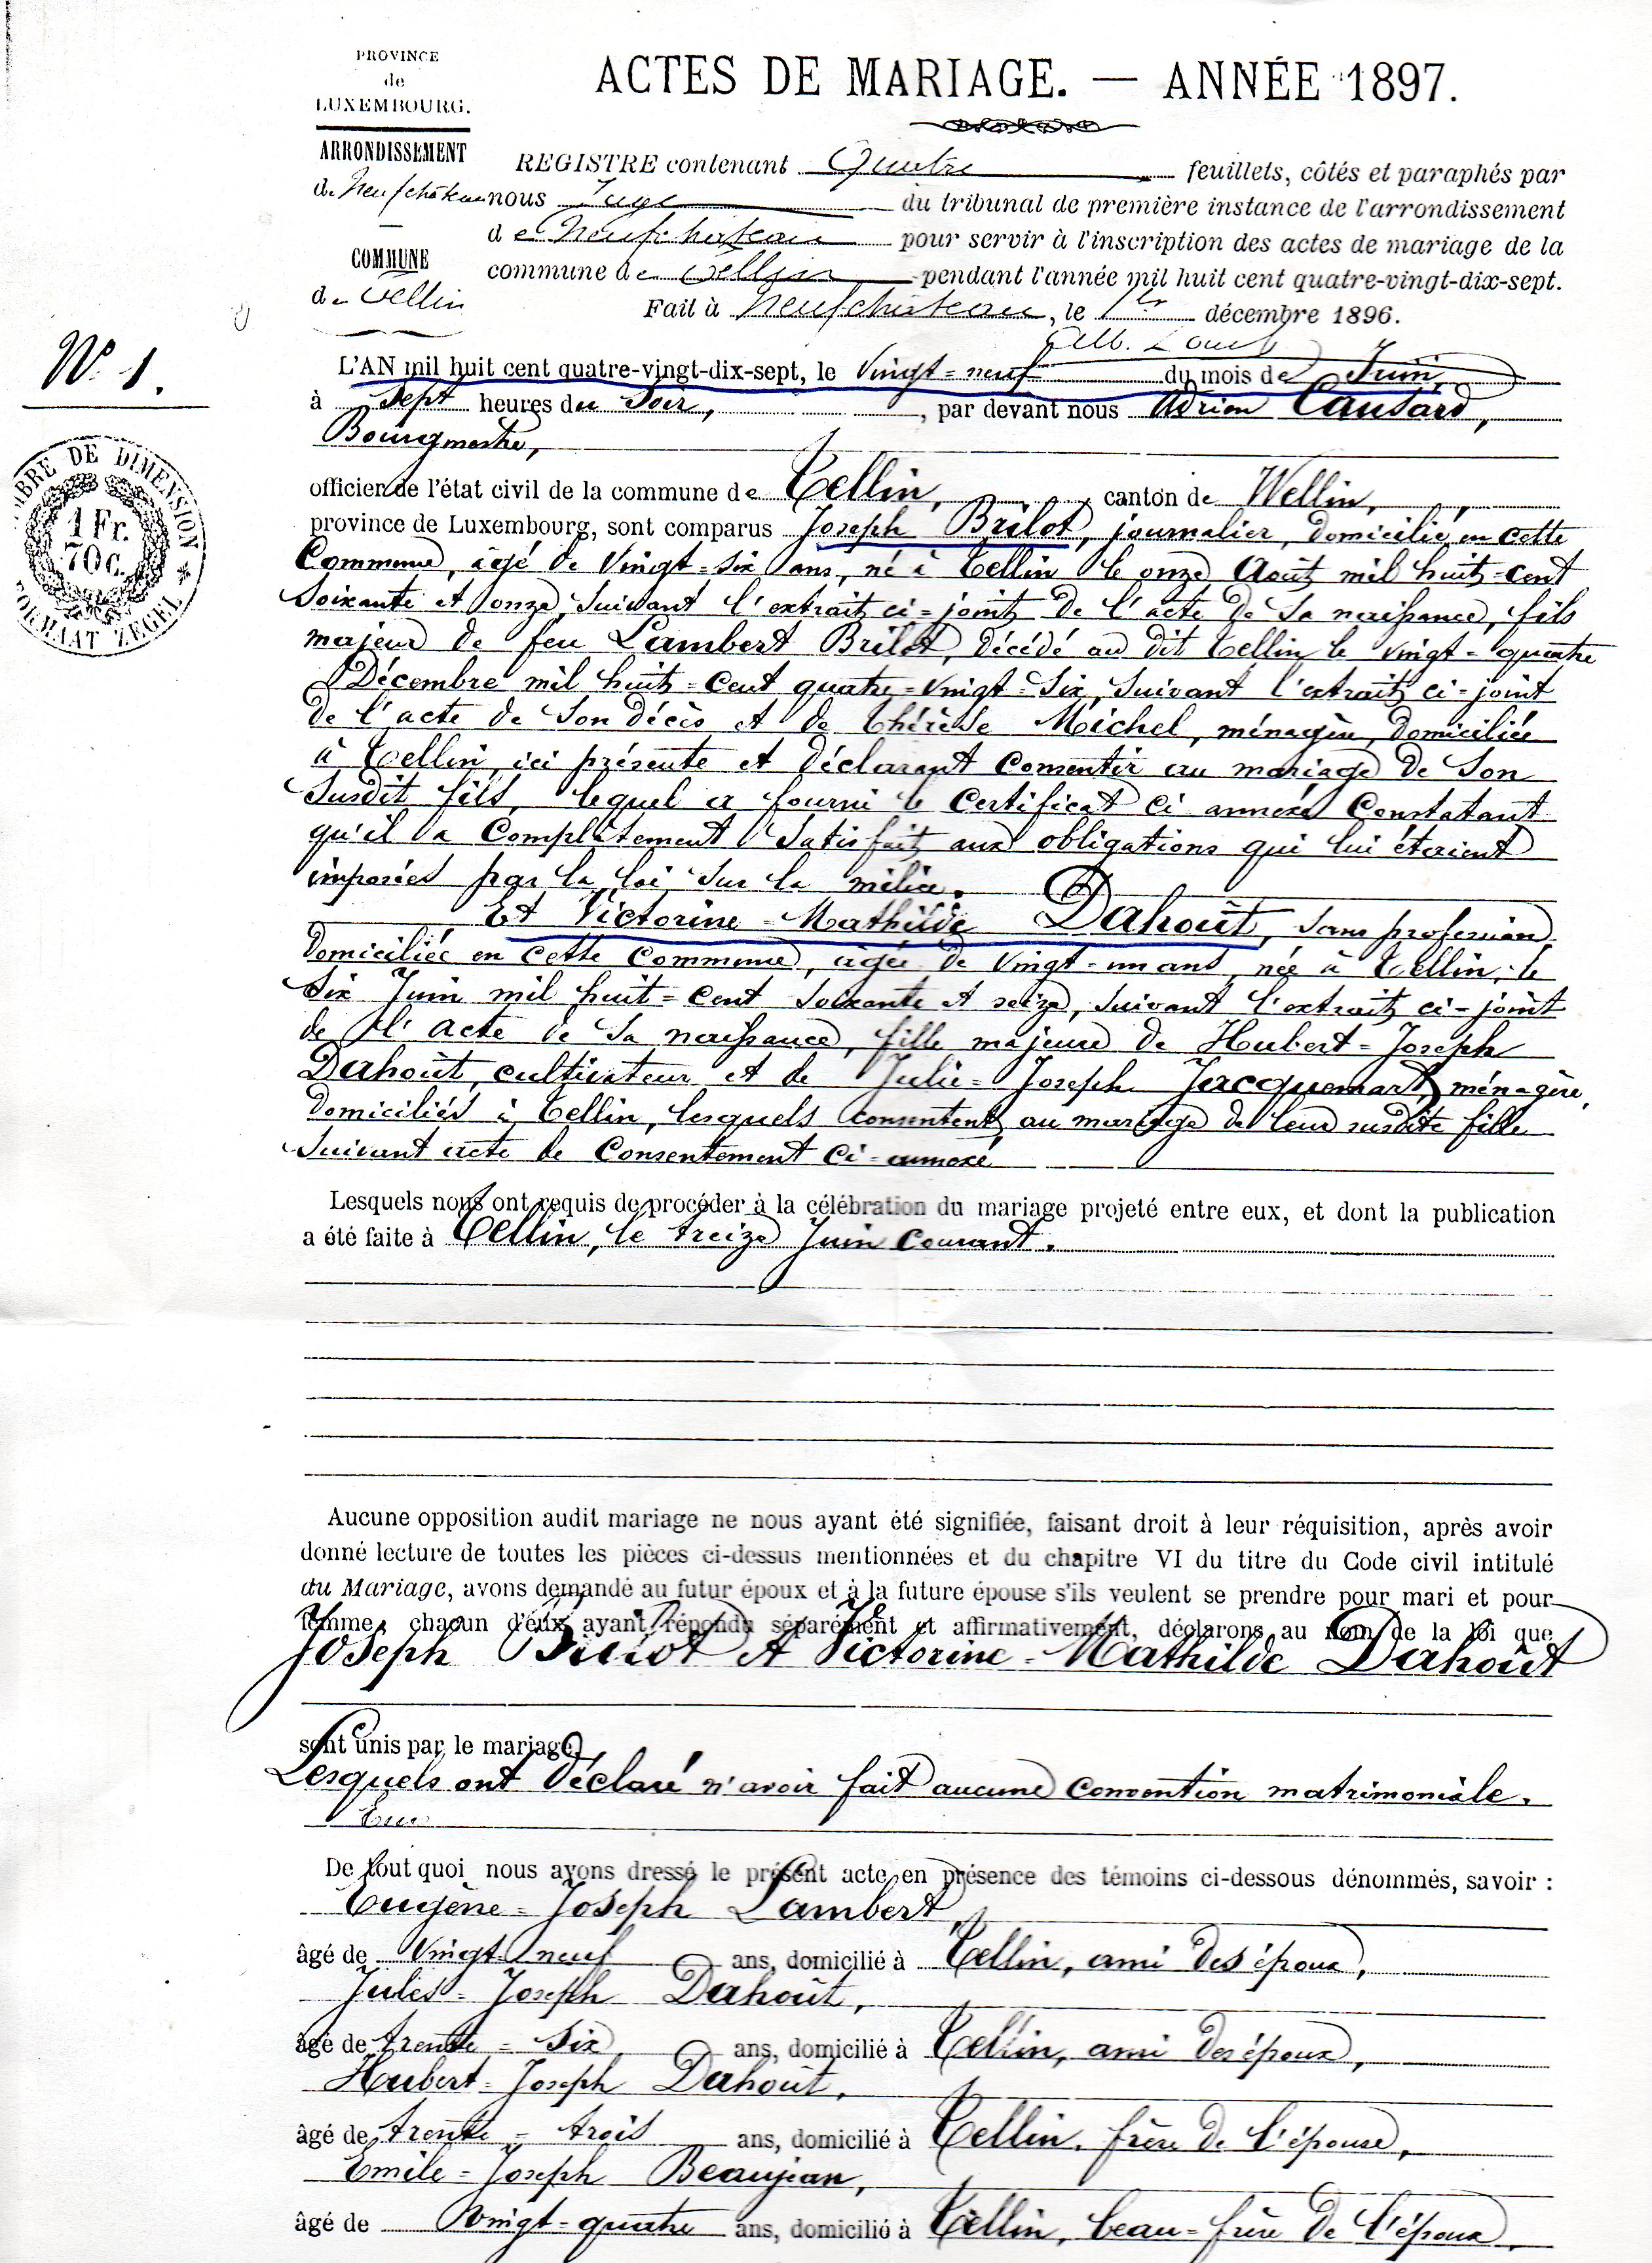 PROVINCE
de
LUXEMBOURG.
ARRONDISSEMENT
de Neufchâteau
COMMUNE
de Tellin
ACTES DE MARIAGE. — ANNÉE 1897.
REGISTRE contenant Quatre feuillets, côtés et paraphés par
nous Juge du tribunal de première instance de l'arrondissement
de Neufchâteau pour servir à l'inscription des actes de mariage de la
commune de Tellin pendant l'année mil huit cent quatre-vingt-dix-sept.
Fait à Neufchâteau, le 1er décembre 1896.
N° 1.
TIMBRE DE DIMENSION
1 Fr.
70 c.
FORMAAT ZEGEL
L'AN mil huit cent quatre-vingt-dix-sept, le Vingt=neuf du mois de Juin,
à Sept heures du Soir, , par devant nous Adrien Causard,
Bourgmestre,
officier de l'état civil de la commune de Tellin, canton de Wellin,
province de Luxembourg, sont comparus Joseph Brilot, journalier, domicilié en cette
Commune, âgé de Vingt=six ans, né à Tellin le onze Août mil huit=cent
Soixante et onze, suivant l'extrait ci=joint de l'acte de Sa naissance, fils
majeur de feu Lambert Brilot, décédé au dit Tellin le vingt=quatre
Décembre mil huit=cent quatre=vingt=six, suivant l'extrait ci=joint
de l'acte de Son décès et de Thérèse Michel, ménagère, domiciliée
à Tellin, ici présente et déclarant consentir au mariage de Son
Susdit fils, lequel a fourni le Certificat ci annexé Constatant
qu'il a Complètement Satisfait aux obligations qui lui étaient
imposées par la loi sur la milice.
Et Victorine=Mathilde Dahoût, sans profession,
domiciliée en cette Commune, âgée de Vingt=un ans, née à Tellin, le
Six Juin mil huit=cent soixante et seize, suivant l'extrait ci=joint
de l'acte de Sa naissance, fille majeure de Hubert=Joseph
Dahoût, cultivateur et de Julie=Joseph Jacquemart, ménagère,
domiciliés à Tellin, lesquels consentent au mariage de leur susdite fille
Suivant acte de Consentement Ci=annexé
Lesquels nous ont requis de procéder à la célébration du mariage projeté entre eux, et dont la publication
a été faite à Tellin, le treize Juin Courant.
Aucune opposition audit mariage ne nous ayant été signifiée, faisant droit à leur réquisition, après avoir
donné lecture de toutes les pièces ci-dessus mentionnées et du chapitre VI du titre du Code civil intitulé
du Mariage, avons demandé au futur époux et à la future épouse s'ils veulent se prendre pour mari et pour
femme, chacun d'eux ayant répondu séparément et affirmativement, déclarons au nom de la loi que
Joseph Brilot et Victorine=Mathilde Dahoût
sont unis par le mariage.
Lesquels ont déclaré n'avoir fait aucune convention matrimoniale.
De tout quoi nous avons dressé le présent acte en présence des témoins ci-dessous dénommés, savoir :
Eugène=Joseph Lambert,
âgé de Vingt=neuf ans, domicilié à Tellin, ami des époux,
Jules=Joseph Dahoût,
âgé de trente=six ans, domicilié à Tellin, ami des époux,
Hubert=Joseph Dahoût,
âgé de trente=trois ans, domicilié à Tellin, frère de l'épouse,
Emile=Joseph Beaujean,
âgé de Vingt=quatre ans, domicilié à Tellin, beau=frère de l'époux,